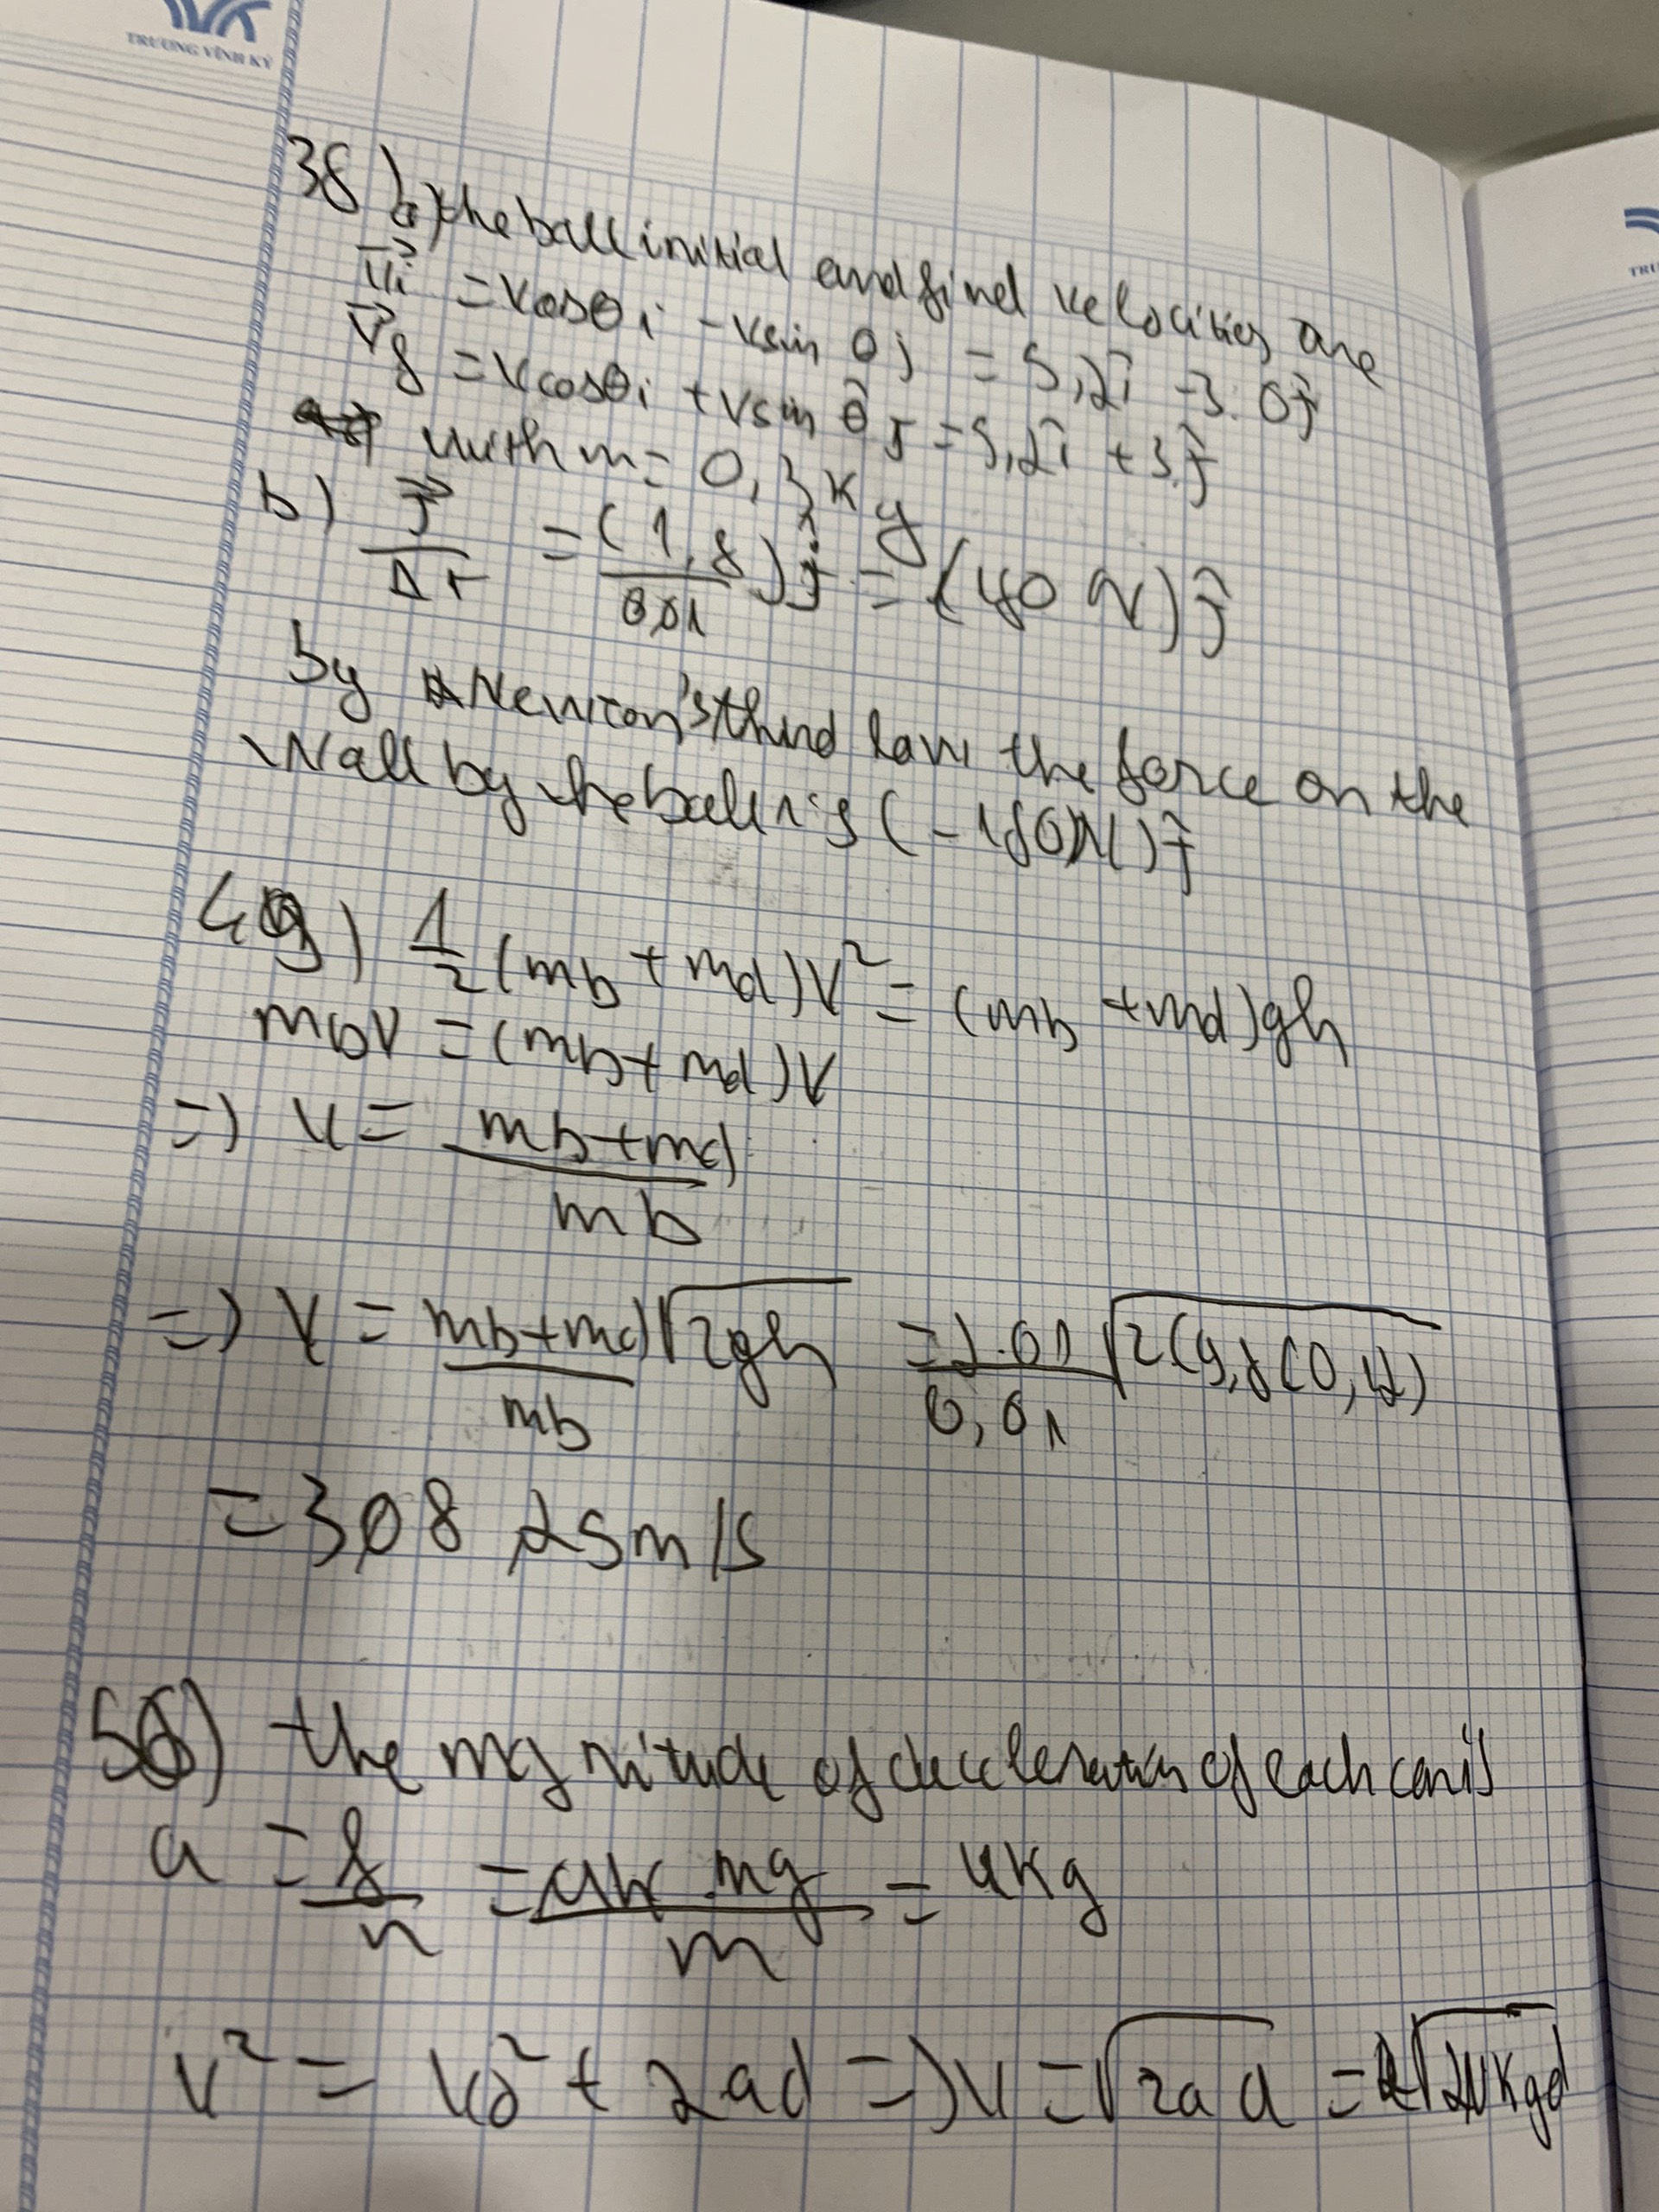 TRƯƠNG VĨNH KÝ
38) a) the ball initial and final velocities are
vi = vcosθi - vsin θj = 5,2î - 3.0ĵ
vf = vcosθi + vsin θj = 5,2î + 3.ĵ
with m = 0,3kg
b) J/Δt = (1,8/0,01)ĵ = (180 N)ĵ
by Newton's third law the force on the
wall by the ball is (-180N)ĵ
49) 1/2 (mb + md)V² = (mb + md)gh
mbv = (mb + md)V
=> v = mb+md / mb
=> V = mb+md / mb √2gh = 2.01/0,01 √2(9,8(0,12)
= 308,25m/s
56) the mgnitude of deceleration of each car is
a = f/m = μk.mg/m = μkg
v² = v0² + 2ad => v = √2ad = √2μkgd